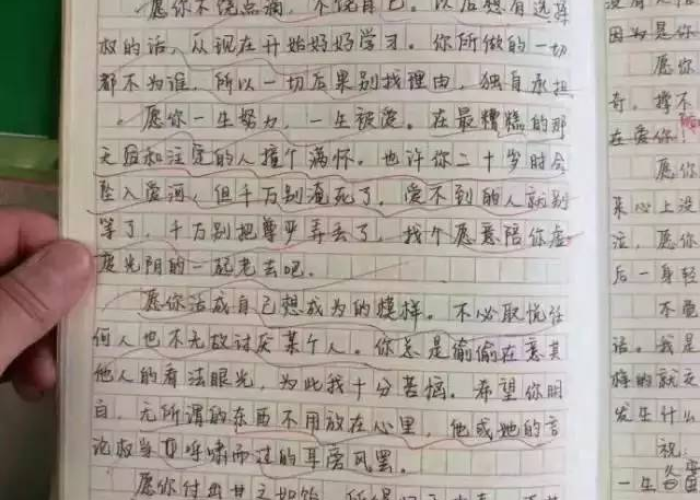 愿你不饶点滴,不饶自己。以后想有选择
权的话,从现在开始好好学习。你所做的一切
都不为谁,所以一切后果别找理由,独自承担
愿你一生努力,一生被爱。在最糟糕的那
天且和注定的人撞个满怀。也许你二十岁时会
坠入爱河,但千万别淹死了。爱不到的人就别
等了,千万别把尊严弄丢了,找个愿意陪你虚
度光阴的一起老去吧。
愿你活成自己想成为的模样。不必取悦任
何人也不无故讨厌某个人。你总是偷偷在意其
他人的看法眼光,为此我十分苦恼。希望你明
白,无所谓的东西不用放在心里,他或她的言
论权当呼啸而过的耳旁风罢。
愿你付出甘之如饴,所得
因为是你
愿你
奇,撑不
在爱你
愿你
来心上没
泣,愿你
后一身轻
不要
话。我是
样的就交
发生什么
祝
一生